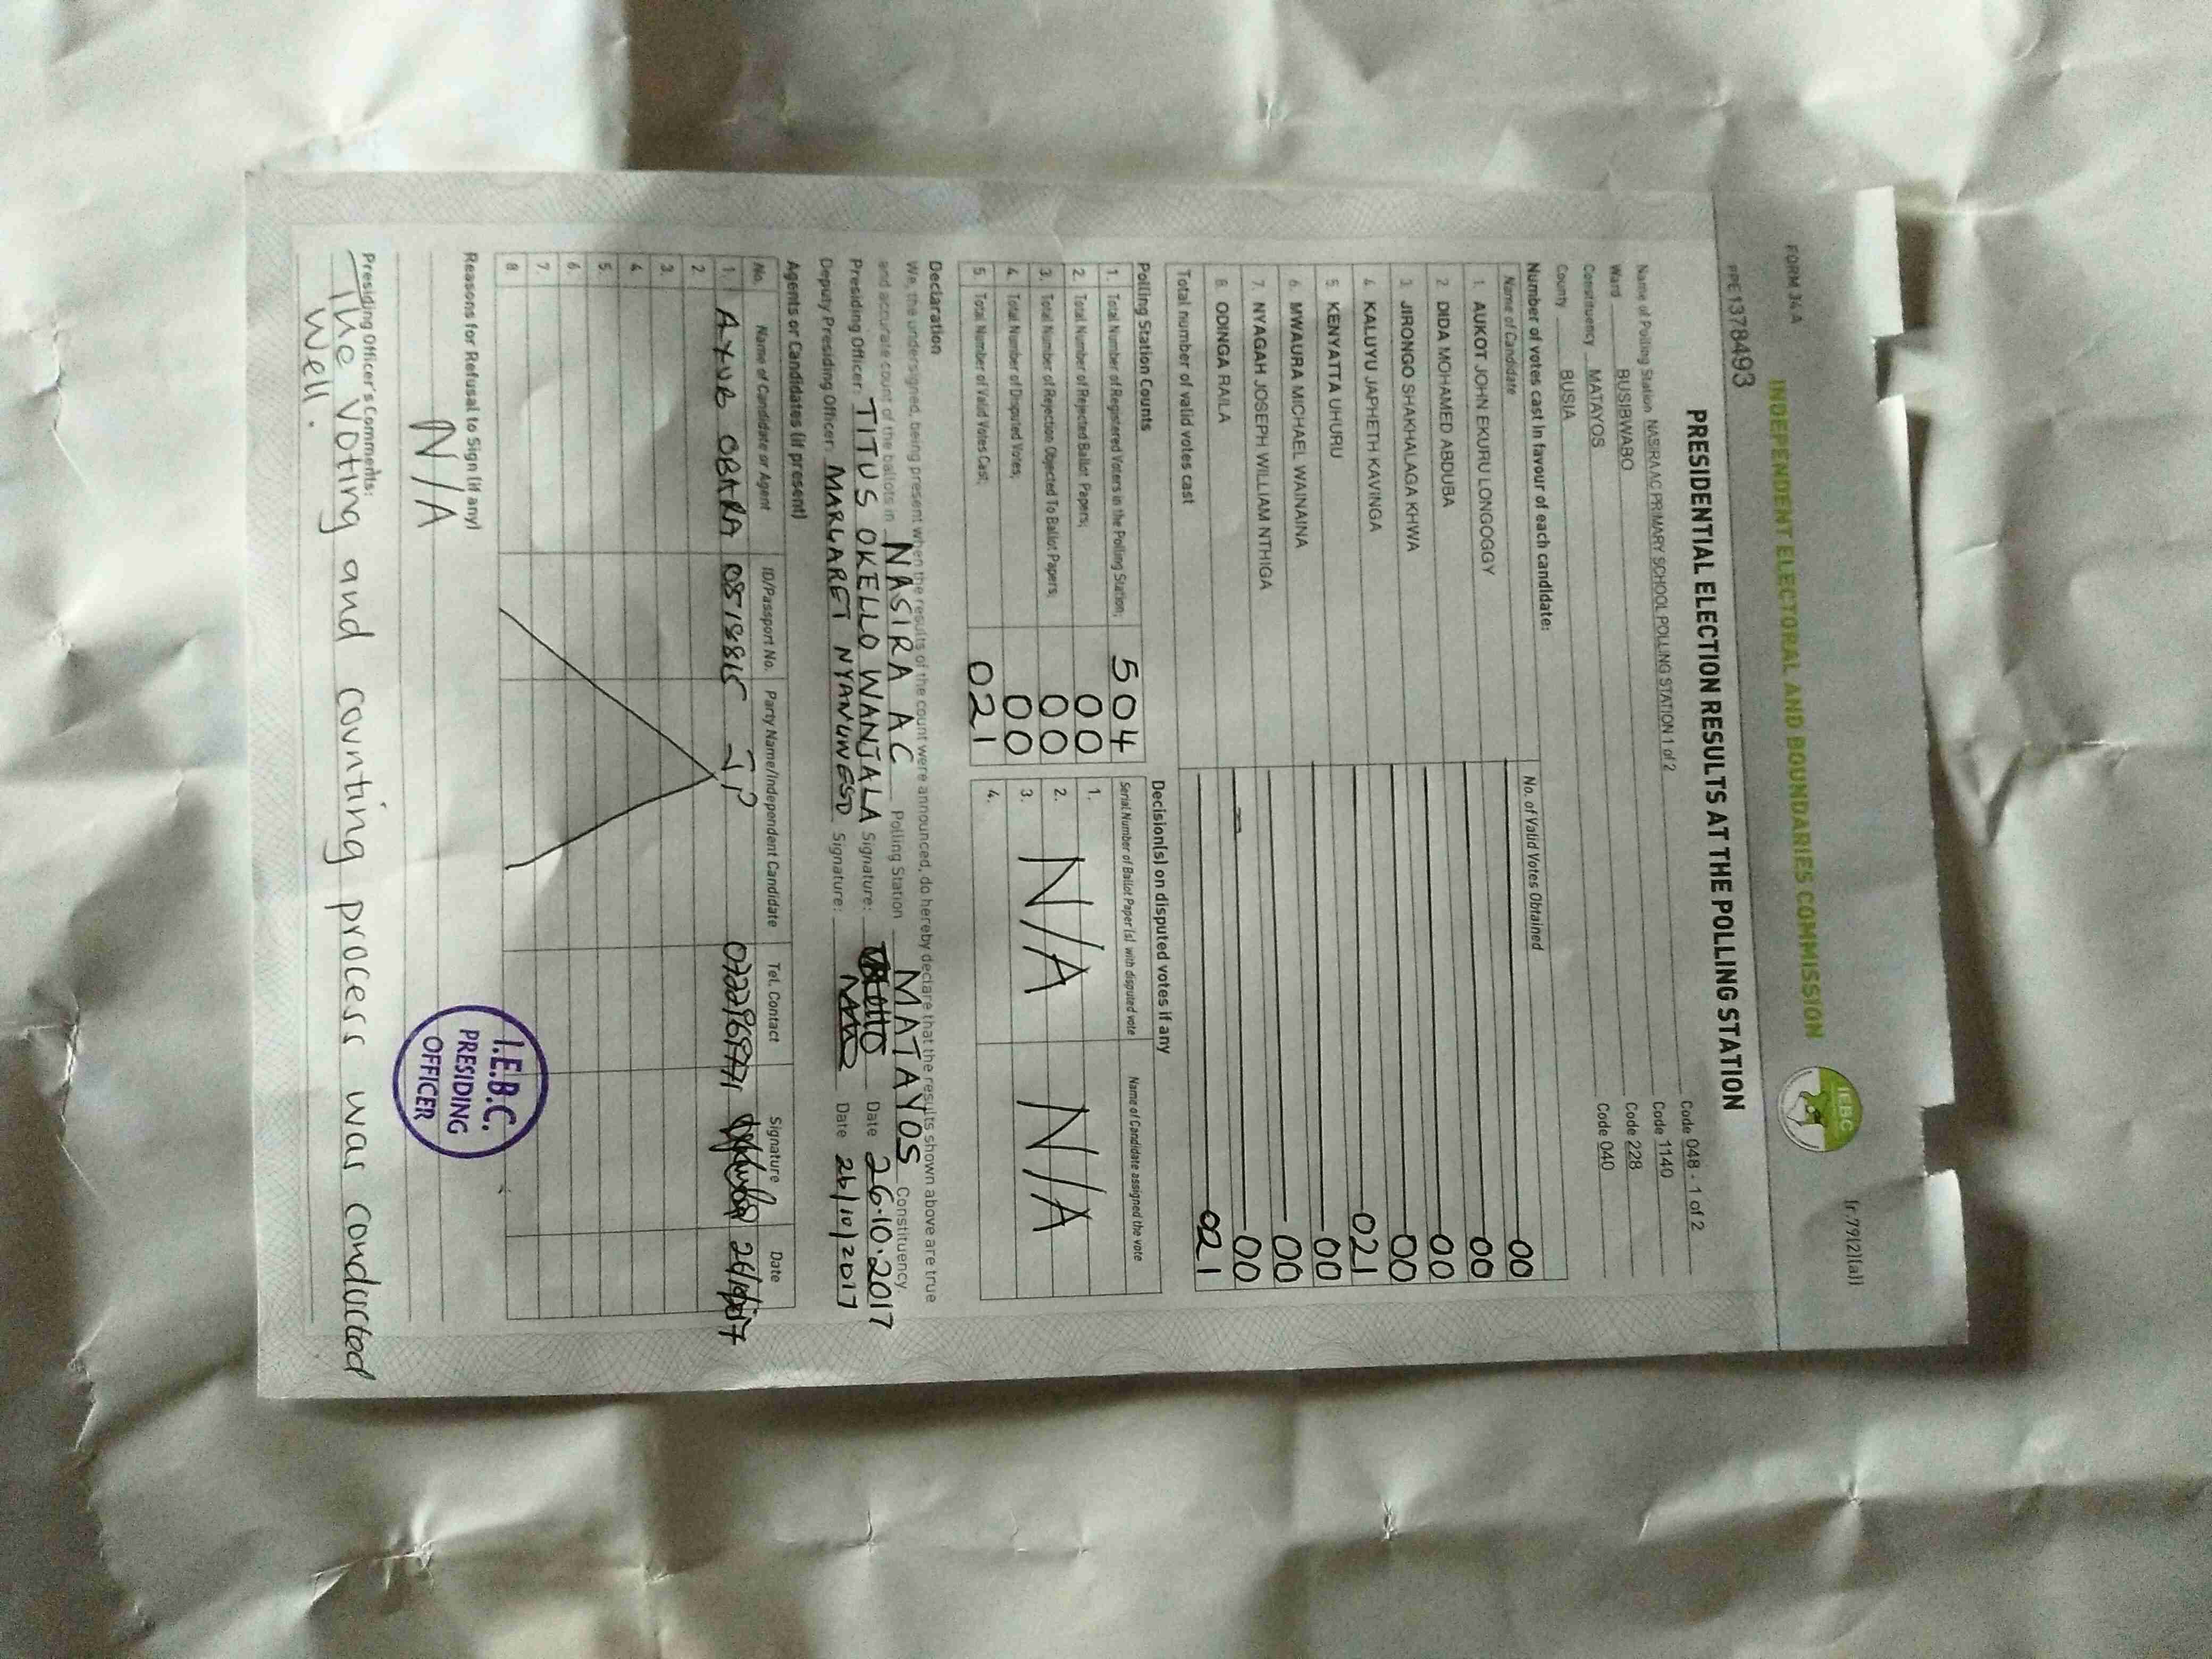 FORM 34A
(r.79(2)(a))
INDEPENDENT ELECTORAL AND BOUNDARIES COMMISSION
IEBC
PPE 1378493
PRESIDENTIAL ELECTION RESULTS AT THE POLLING STATION
Name of Polling Station NASIRA AC PRIMARY SCHOOL POLLING STATION 1 of 2 Code 048 - 1 of 2
Ward BUSIBWABO Code 1140
Constituency MATAYOS Code 228
County BUSIA Code 040
Number of votes cast in favour of each candidate:
Name of Candidate No. of Valid Votes Obtained
1. AUKOT JOHN EKURU LONGOGGY 00
2 DIDA MOHAMED ABDUBA 00
3. JIRONGO SHAKHALAGA KHWA 00
4 KALUYU JAPHETH KAVINGA 00
5. KENYATTA UHURU 021
6. MWAURA MICHAEL WAINAINA 00
7. NYAGAH JOSEPH WILLIAM NTHIGA 00
8. ODINGA RAILA 00
Total number of valid votes cast 021
Polling Station Counts
1. Total Number of Registered Voters in the Polling Station; 504
2. Total Number of Rejected Ballot Papers; 00
3. Total Number of Rejection Objected To Ballot Papers; 00
4. Total Number of Disputed Votes; 00
5. Total Number of Valid Votes Cast; 021
Decision(s) on disputed votes if any
Serial Number of Ballot Paper (s) with disputed vote Name of Candidate assigned the vote
1.
2. N/A N/A
3.
4.
Declaration
We, the undersigned, being present when the results of the count were announced, do hereby declare that the results shown above are true
and accurate count of the ballots in NASIRA AC Polling Station MATAYOS Constituency.
Presiding Officer: TITUS OKELLO WANJALA Signature: Date 26.10.2017
Deputy Presiding Officer: MARGARET Signature: Date 26/10/2017
Agents or Candidates (if present)
No. Name of Candidate or Agent ID/Passport No. Party Name/Independent Candidate Tel. Contact Signature Date
1. AYUB OBARA JP
2.
3.
4.
5.
6.
7.
8.
Reasons for Refusal to Sign (if any)
N/A
I.E.B.C.
PRESIDING
OFFICER
Presiding Officer's Comments:
The voting and counting process was conducted
well.